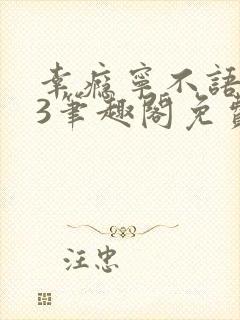 幸瘾寧不語
3筆趣閣免費
汪忠